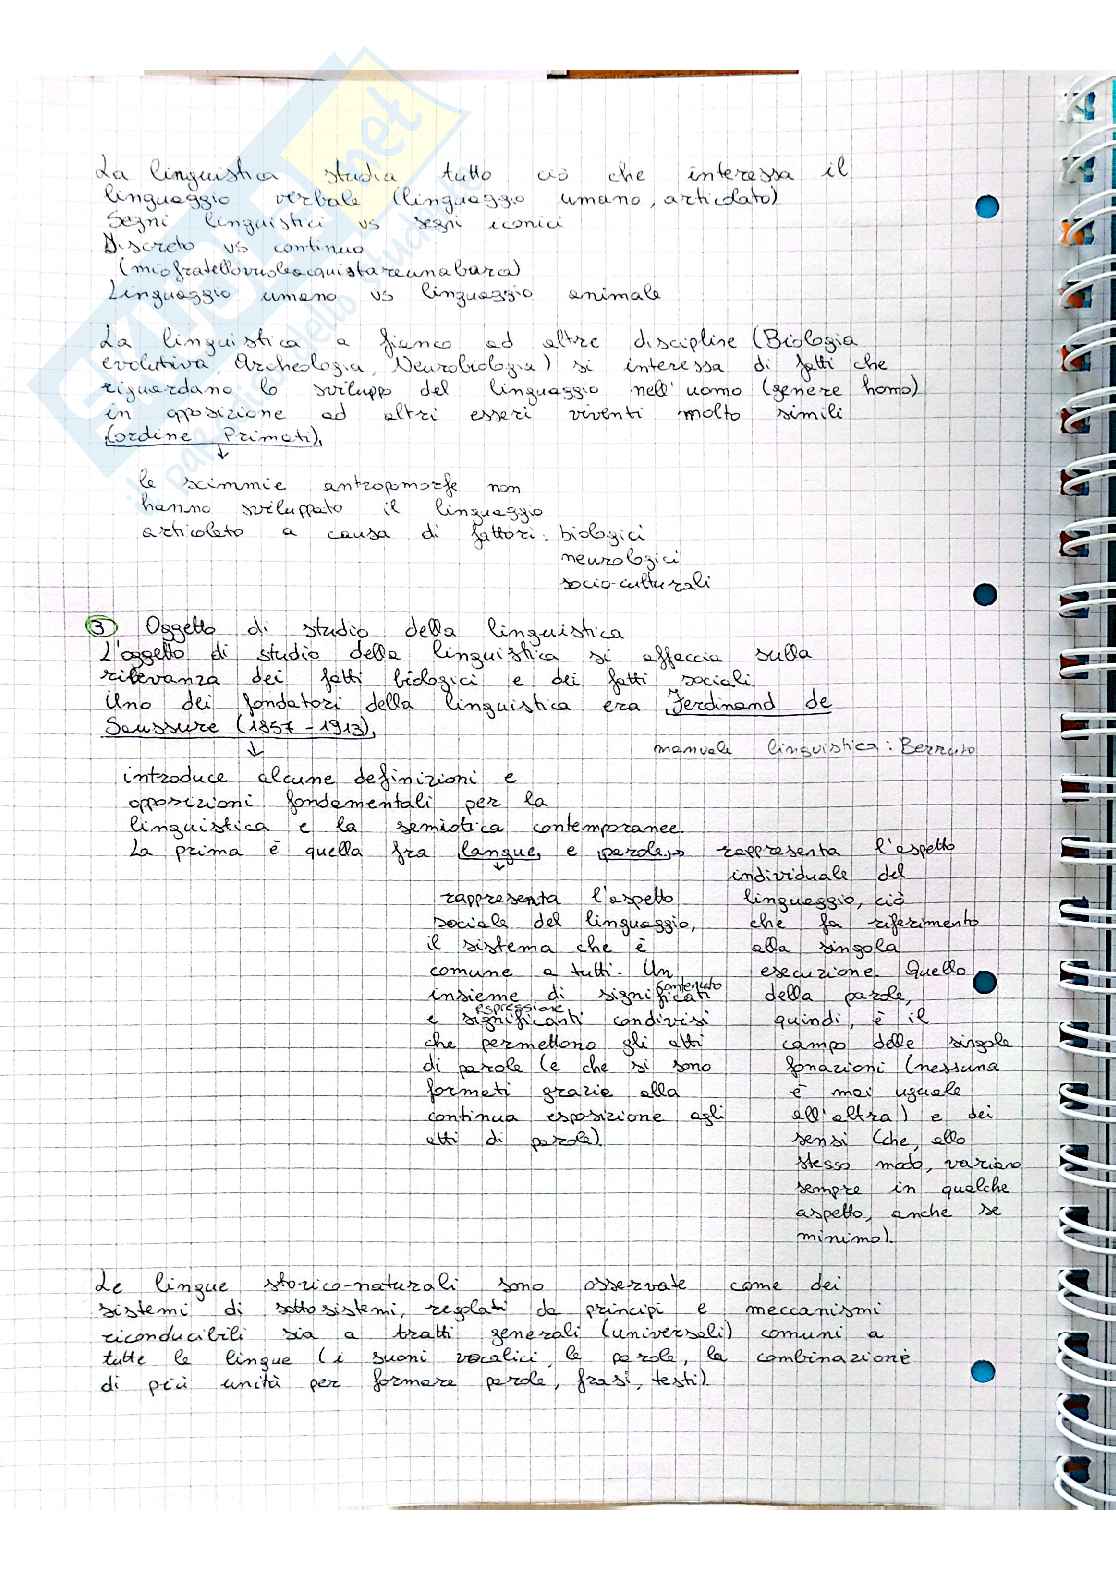 La linguistica studia tutto ciò che interessa il
linguaggio verbale (linguaggio umano, articolato)
Segni linguistici vs segni iconici
Discreto vs continuo
(miofratellovuoleacquistareunabarca)
Linguaggio umano vs linguaggio animale
La linguistica a fianco ad altre discipline (Biologia
evolutiva Archeologia, Neurobiologia) si interessa di fatti che
riguardano lo sviluppo del linguaggio nell'uomo (genere homo)
in opposizione ad altri esseri viventi molto simili
(ordine Primati).
↓
le scimmie antropomorfe non
hanno sviluppato il linguaggio
articolato a causa di fattori: biologici
neurologici
socio-culturali
3 Oggetto di studio della linguistica
L'oggetto di studio della linguistica si affaccia sulla
rilevanza dei fatti biologici e dei fatti sociali
Uno dei fondatori della linguistica era Ferdinand de
Saussure (1857-1913).
↓
manuale linguistica: Berruto
introduce alcune definizioni e
opposizioni fondamentali per la
linguistica e la semiotica contemporanee.
La prima è quella fra langue e parole →
↓
rappresenta l'aspetto
sociale del linguaggio,
il sistema che è
comune a tutti. Un
contenuto
insieme di significati
espressione
e significanti condivisi
che permettono gli atti
di parole (e che si sono
formati grazie alla
continua esposizione agli
atti di parole).
rappresenta l'aspetto
individuale del
linguaggio, ciò
che fa riferimento
alla singola
esecuzione. Quello
della parole,
quindi, è il
campo delle singole
fonazioni (nessuna
è mai uguale
all'altra) e dei
sensi (che, allo
stesso modo, variano
sempre in qualche
aspetto, anche se
minimo).
Le lingue storico-naturali sono osservate come dei
sistemi di sottosistemi, regolati da principi e meccanismi
riconducibili sia a tratti generali (universali) comuni a
tutte le lingue (i suoni vocalici, le parole, la combinazione
di più unità per formare parole, frasi, testi).